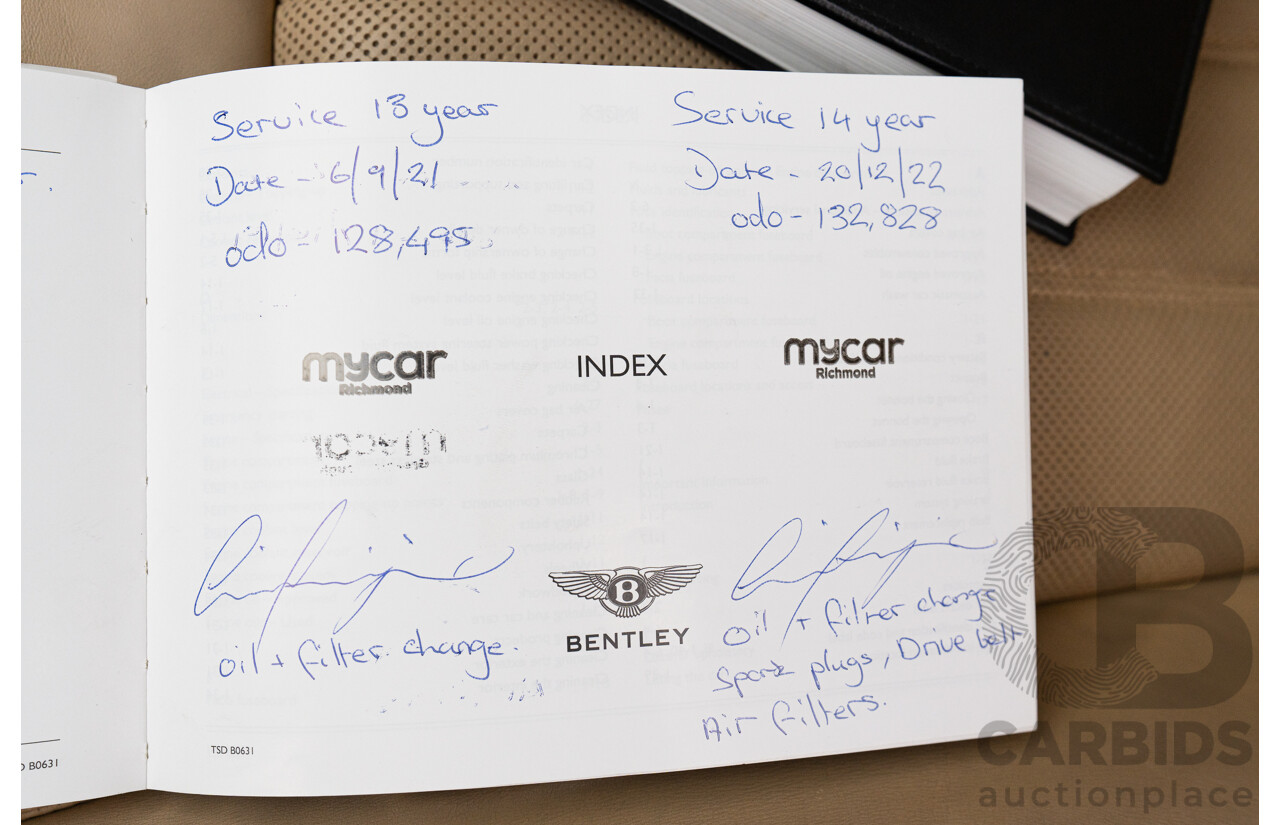 Service 13 year
Date - 6/9/21
odo - 128,495
mycar
Richmond
oil + filter change.
TSD B0631
INDEX
B
BENTLEY
Service 14 year
Date - 20/12/22
odo - 132,828
mycar
Richmond
oil + filter change
Spark plugs, Drive belt
Air filters.
B0631
CB
CARBIDS
auctionplace